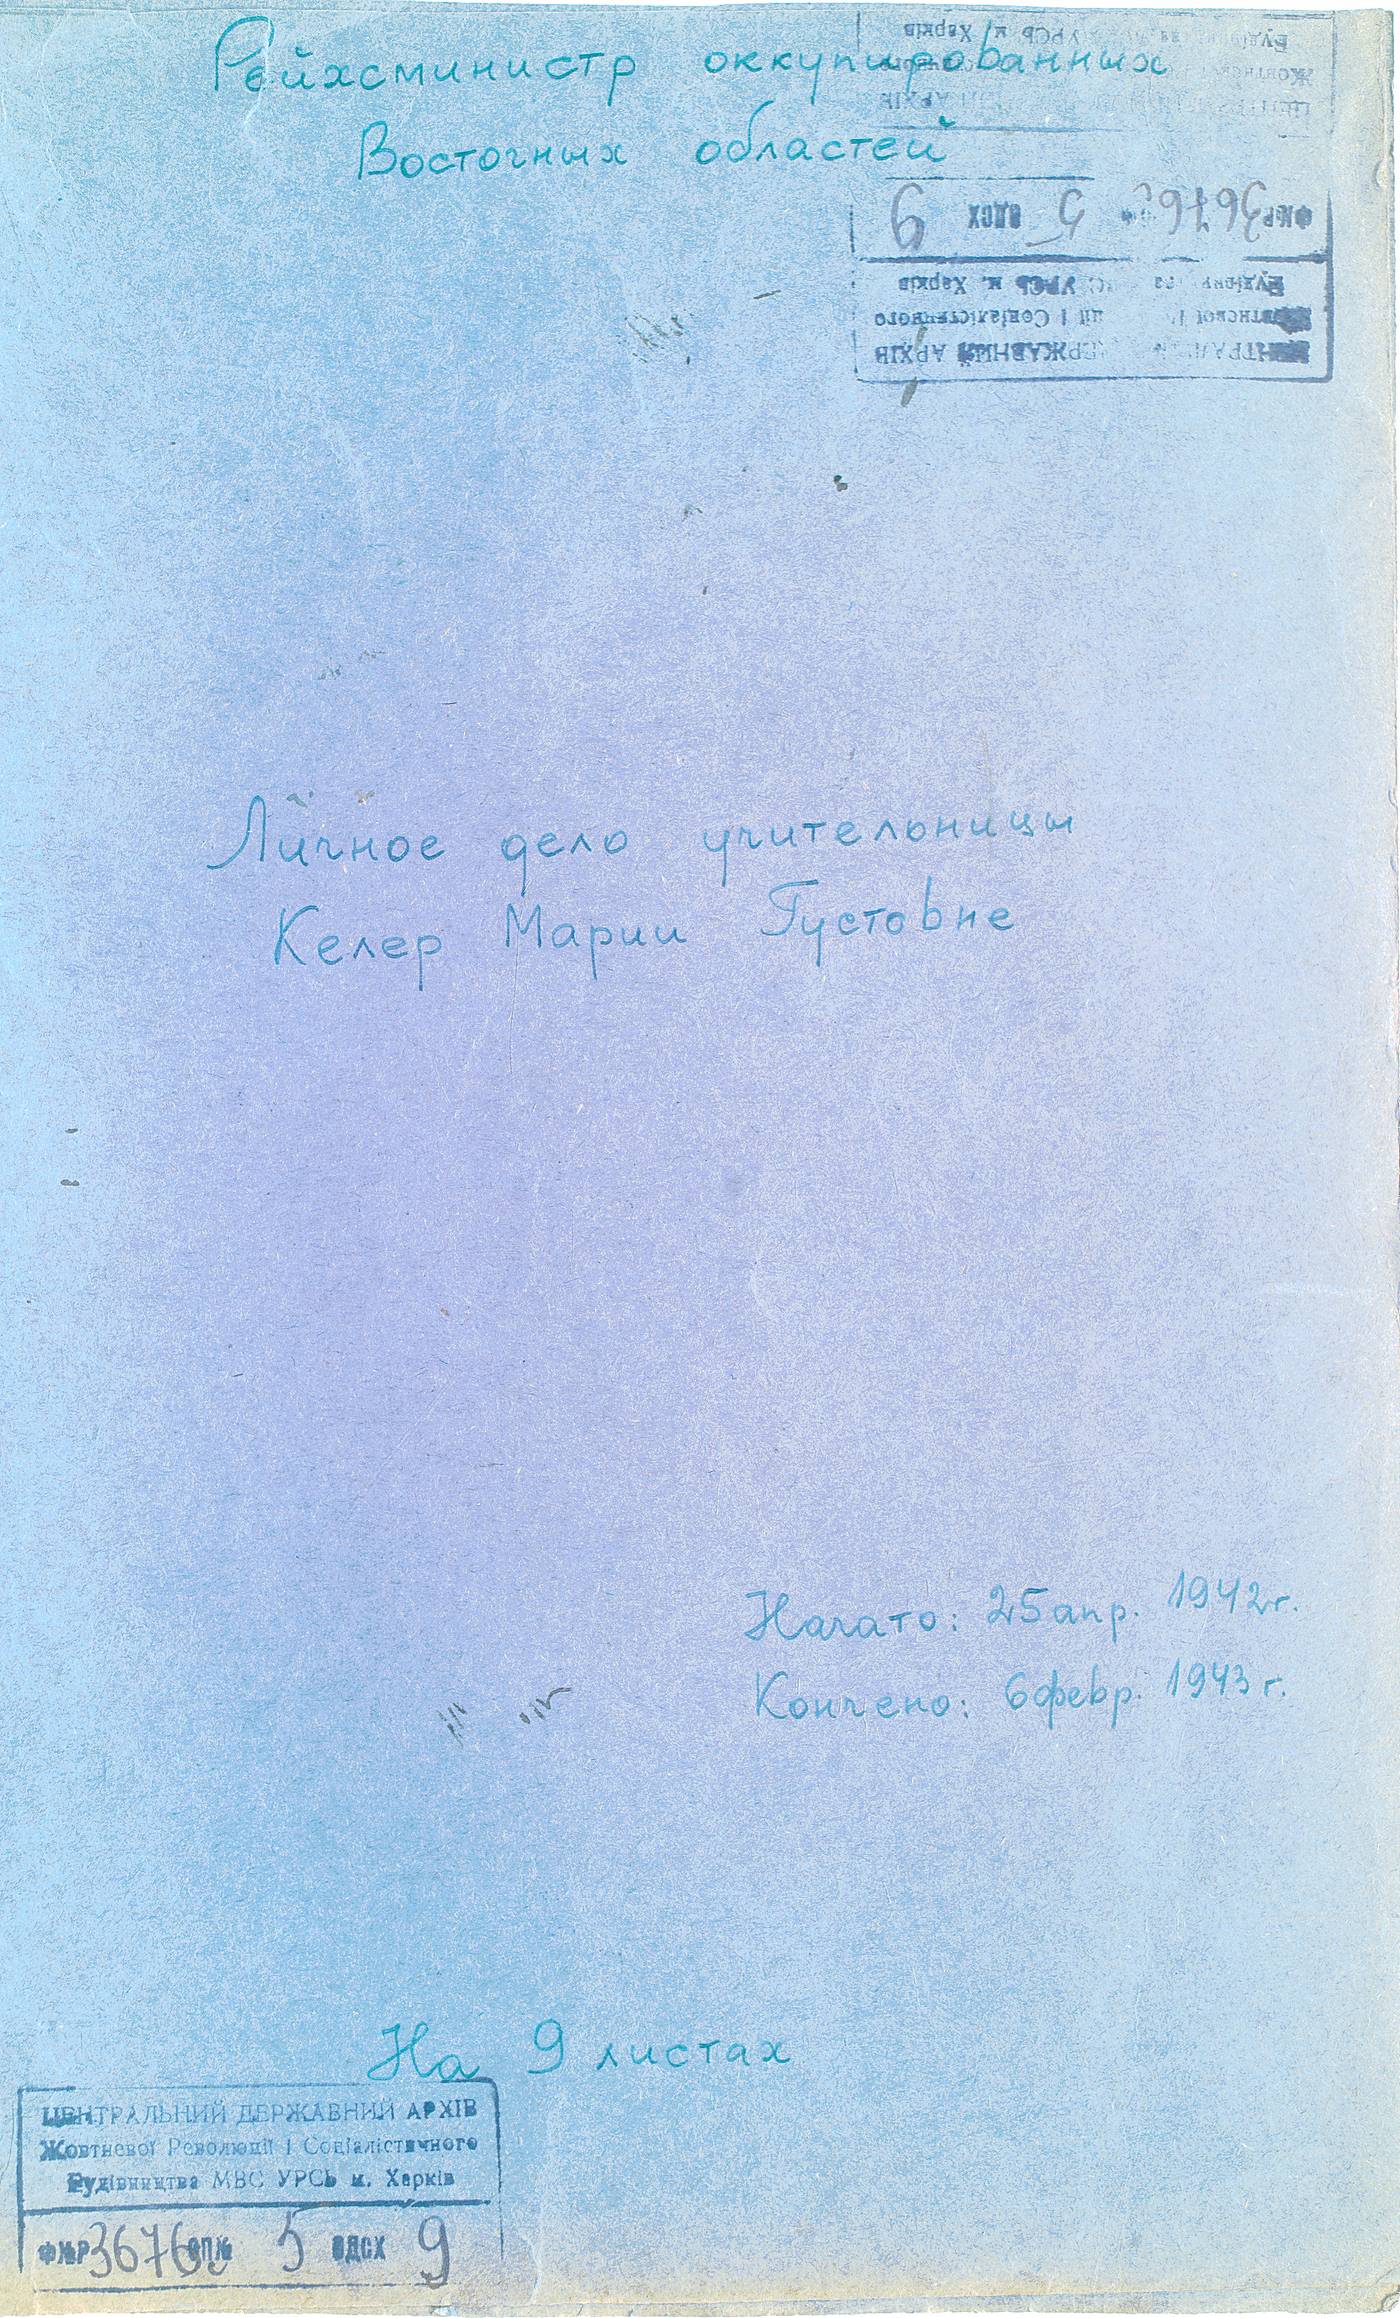 Рейхсминистр оккупированных
Восточных областей
Будівництва УРСЬ м. Харків
АРХІВ
Ф№Р 3676 5 ОДСХ 9
Будівництва УРСЬ м. Харків
Жовтневої Революції і Соціалістичного
ЦЕНТРАЛЬНИЙ ДЕРЖАВНИЙ АРХІВ
Личное дело учительницы
Келер Марии Густовне
Начато: 25 апр. 1942г.
Кончено: 6 февр. 1943 г.
На 9 листах
ЦЕНТРАЛЬНИЙ ДЕРЖАВНИЙ АРХІВ
Жовтневої Революції і Соціалістичного
Будівництва МВС УРСЬ м. Харків
Ф№Р 3676 ОП№ 5 ОДСХ 9